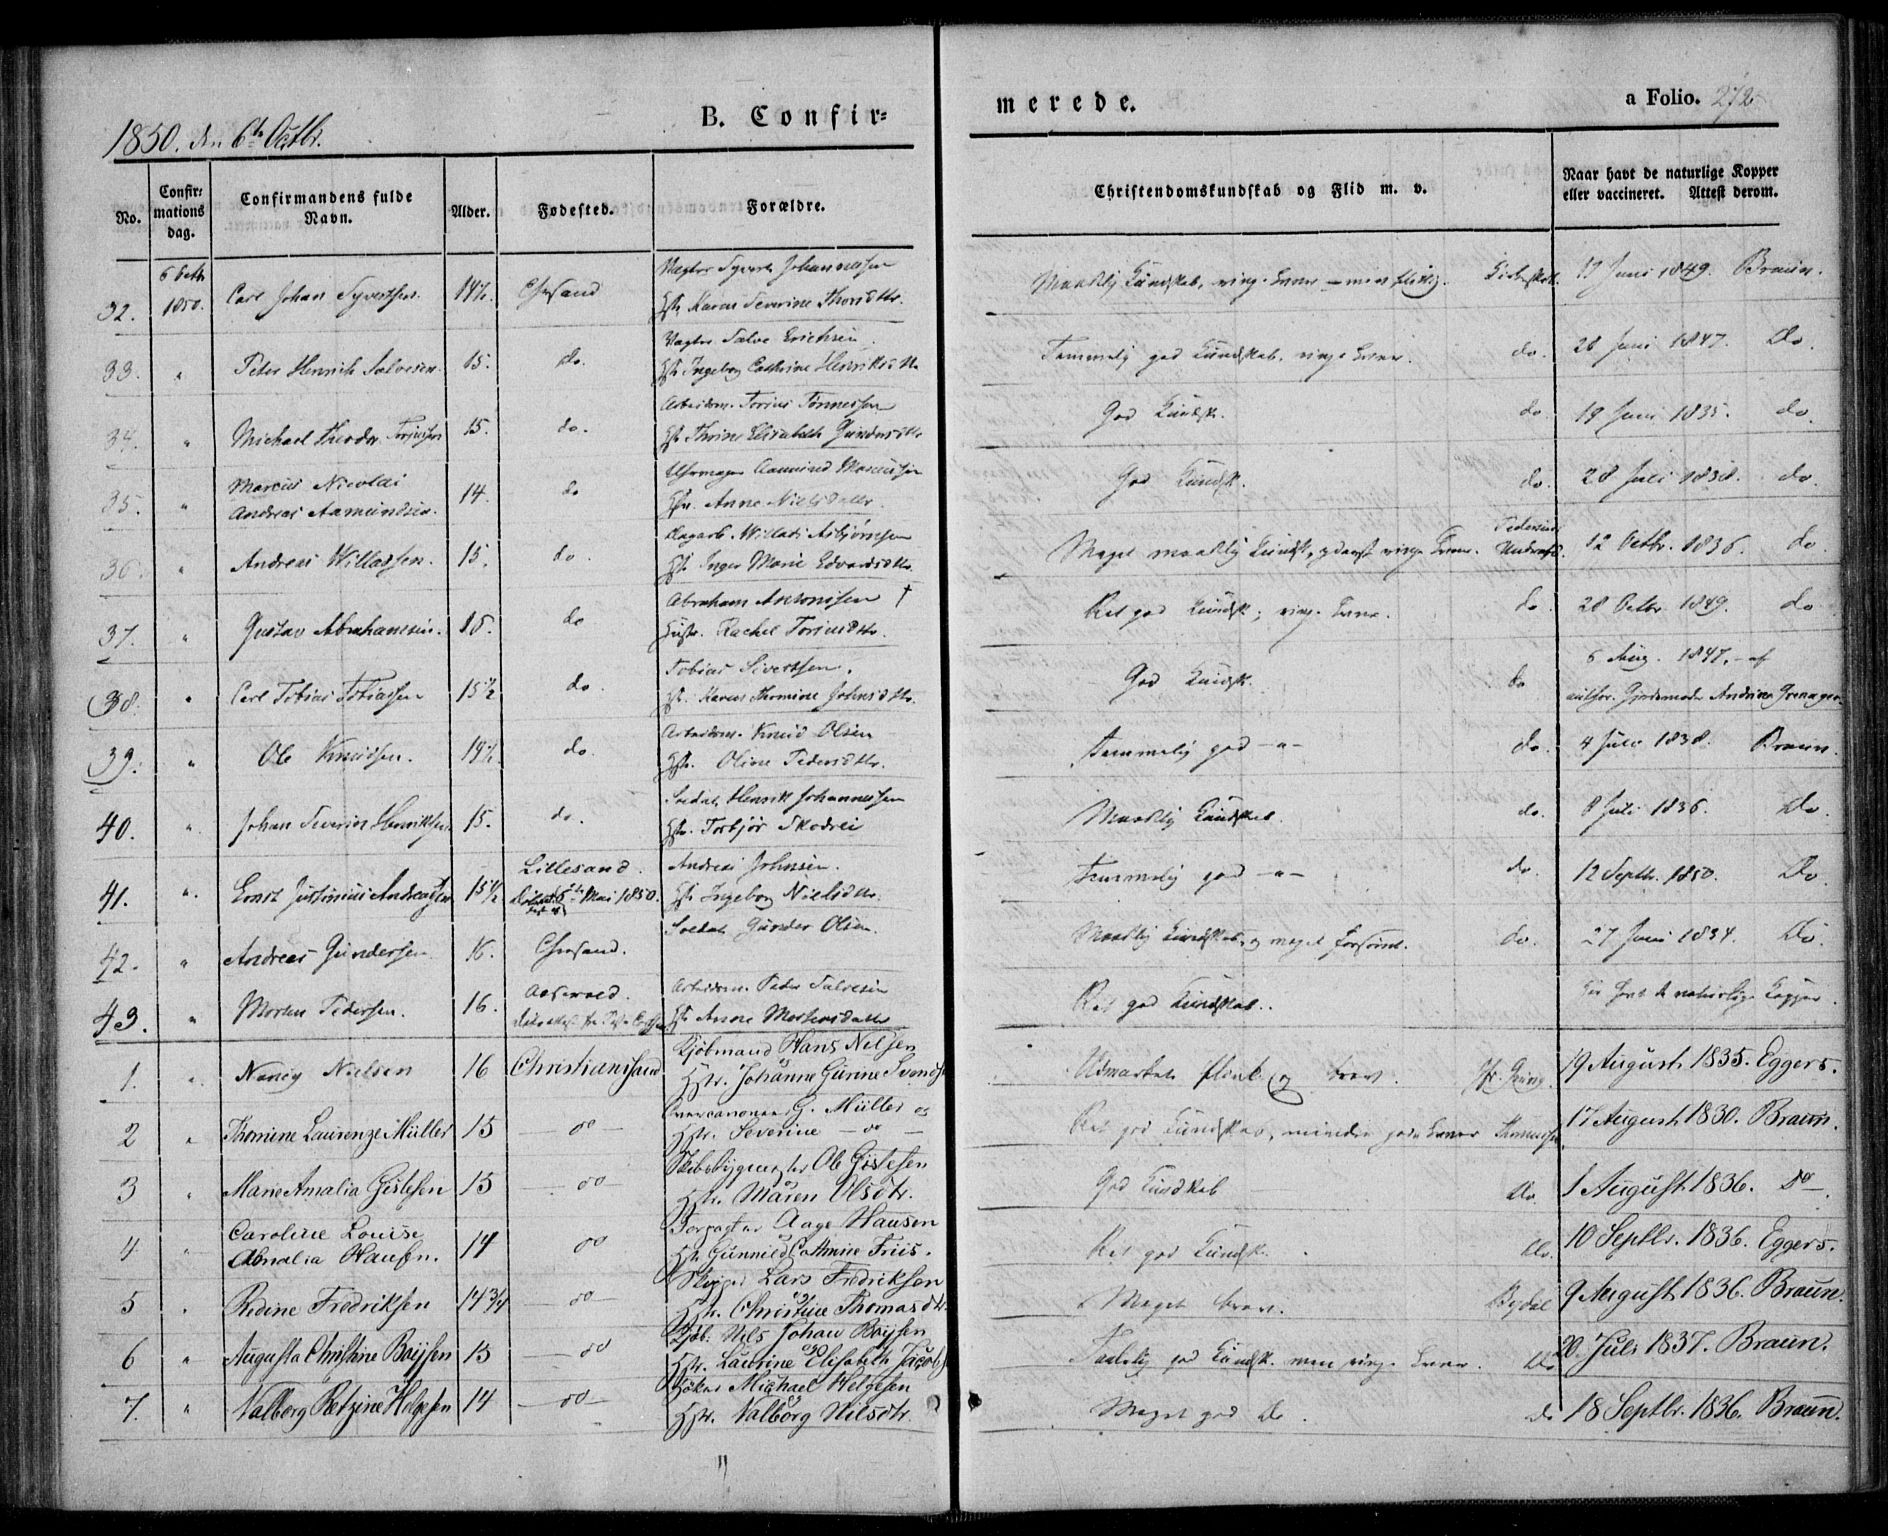 1850. den 6te Octbr.
B. Confir=
merede.
a Folio. 272
No.
Confir=
mations
dag.
Confirmandens fulde
Navn.
Alder.
Fodested.
Forældre.
Christendomskundskab og Flid m. v.
Naar havt de naturlige Kopper
eller vaccineret. Attest derom.
6 Octb
1850.
32. Carl Johan Syvertsen. 14½. Chrsand
Vægter Syvert Johannessen
Hst. Karen Severine
Maadelig Kundskab, ringe Evner – men flittig.
17 Juni 1849. Braun.
33. " Peter Henrich Salvesen. 15. do.
Vægter Salve Erichsen.
Hst. Ingeborg Cathrine Henriksdtr
Temmelig god Kundskab, ringe Evner. do.
28 Juni 1847. Do.
34. " Michael Theodor Torjussen 15. do.
Arbeidsm. Torius Tønnessen
Hst. Thrine Elisabeth Gundersdtr
God Kundsk. do
19 Juni 1835. do.
35. " Marcus Nicolai
Andreas Aamundsen. 14. do
Uhrmager Aamund Marcussen
Hst. Anne Nielsdatter.
God Kundsk. do.
28 Juli 1838. do.
36. " Andreas Willassen. 15. do.
Willads Asbjørnsen
Hst. Inger Marie Edvardsdtr.
Meget maadelig Kundsk, ringe Evner.
12 Octbr. 1836. do.
37. " Gustav Abrahamsen. 18. do
Abraham Antonisen †
Hustr. Rachel Toriusdtr.
Ret god Kundsk; ringe Evner. do.
28 Octbr. 1849. do
38. " Carl Tobias Tobiassen 15½ do.
Tobias Sivertsen.
Hst. Karen Thomine Johnsdtr.
God Kundsk. do
6 Aug. 1847, – af
Gjordemoder Andrine Grenager
39. " Ole Knudsen. 14½ do.
Arbeidsm. Knud Olsen
Hst. Oline Pedersdtr.
Temmelig god –"– do.
4 Juli 1838. Braun.
40. " Johan Severin Henriksen. 15. do.
Soldat Henrik Johannessen
Hst. Torbjør Skodvei
Maadelig Kundskab. do.
8 Juli 1836. Do.
41. " Ernst Justinius Andreassen 15½
Lillesand.
6te Mai 1850.
Andreas Johnsen.
Hst. Ingeborg Nielsdtr.
Temmelig god –"– do.
12 Septb. 1850. Do.
42. " Andreas Gundersen 16. Chrsand.
Soldat Gunder Olsen.
Maadelig Kundskab, og meget forsømt. do.
27 Juni 1834. Do.
43. " Morten Pedersen. 16.
Arbeidsm. Peder Salvesen
Hst. Anne Mortensdatter
Ret god Kundskab.
havt de naturlige Kopper.
1. " Nancy Nielsen 16 Christianssand
Kjøbmand Hans Nielsen
Hstr. Johanne Gurine Svends
Udmærket flink og brav.
19 August 1835. Eggers.
2 " Thomine Laurenze Müller 15 – do –
G. Müller og
Hstr. Severine – do –
Ret god Kundskab, mindre gode Evner Thomassen.
17 August 1830. Braun.
3 " Marie Amalia Gislesen 15 – do –
Skibsbygmester Ole Gislesen
Hstr. Maren Olsdtr.
God Kundskab Do.
1 August 1836. Do –.
4 " Caroline Louise
Amalia Hansen. 14 do
Forpagter Aage Hansen
Hstr Gunnild Cathrine Friis.
Ret god Kundsk. Do.
10 Septbr. 1836. Eggers.
5 " Redine Fredriksen 14¾ – do –
Skipper Lars Fredriksen
Hstr. Christine Thomasdtr.
Meget brav. Bydal
9 August 1836. Braun.
6 " Augusta Christine Boysen 15 – do
Kjøb. Nils Johan Boysen
Hstr. Laurine Elisabeth Jacobs
god Kundsk. men ringe Evner. Do
20. Juli 1837. Braun.
7. " Valborg Retzine Helgesen 14 – do –
Høker Michael Helgesen
Hstr. Valborg Nilsdtr.
Meget god Do. Do
18 Septbr. 1836. Braun.